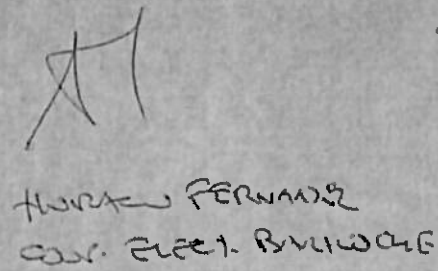 HORACIO FERNANDEZ
COOP. ELECT. BARILOCHE